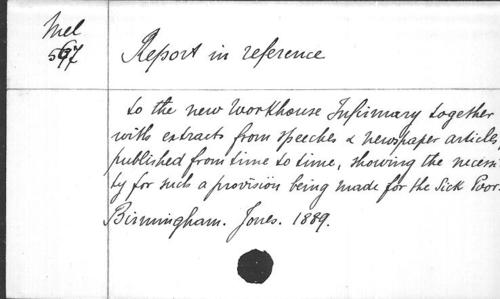 Mel
597
Report in reference
to the new Workhouse Infirmary together
with extracts from speeches & newspaper articles,
published from time to time, showing the necessi-
ty for such a provision being made for the Sick Poor.
Birmingham. Jones. 1889.